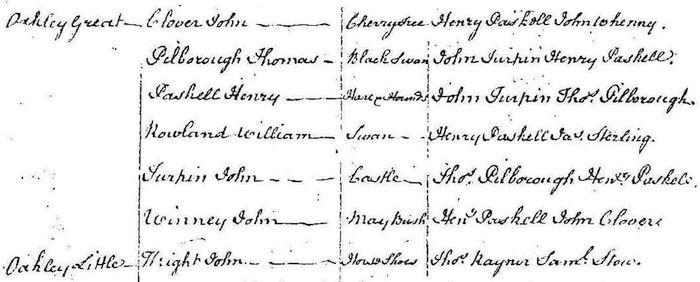 Oakley Great — Clover John — Cherrytree Henry Paskell John Whenny.
Pilborough Thomas — Black Swan John Turpin Henry Paskell.
Paskell Henry — Hare & Hounds John Turpin Thos. Pilborough.
Rowland William — Swan — Henry Paskell Jas. Sterling.
Turpin John — Castle — Thos. Pilborough Henry Paskell.
Winney John — May Bush Heny. Paskell John Clover
Oakley Little — Wright John — Horse Shoes Thos. Rayner Saml. Stow.